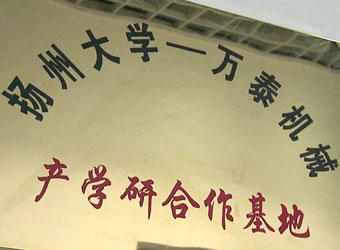 扬州大学—万泰机械
产学研合作基地